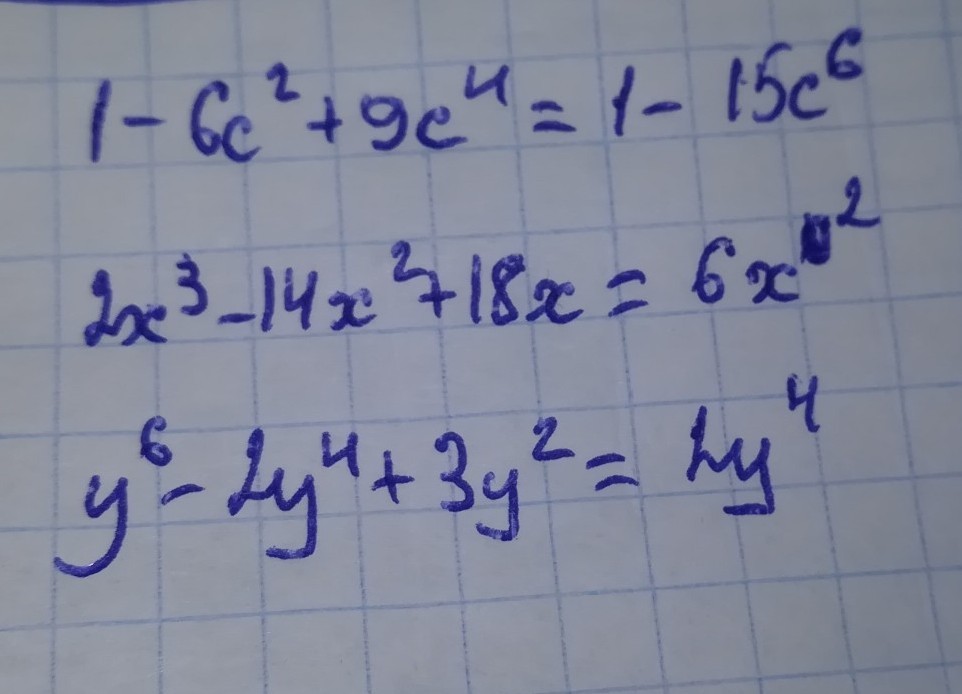 1 - 6c² + 9c⁴ = 1 - 15c⁶
2x³ - 14x² + 18x = 6x²
y⁶ - 2y⁴ + 3y² = 2y⁴